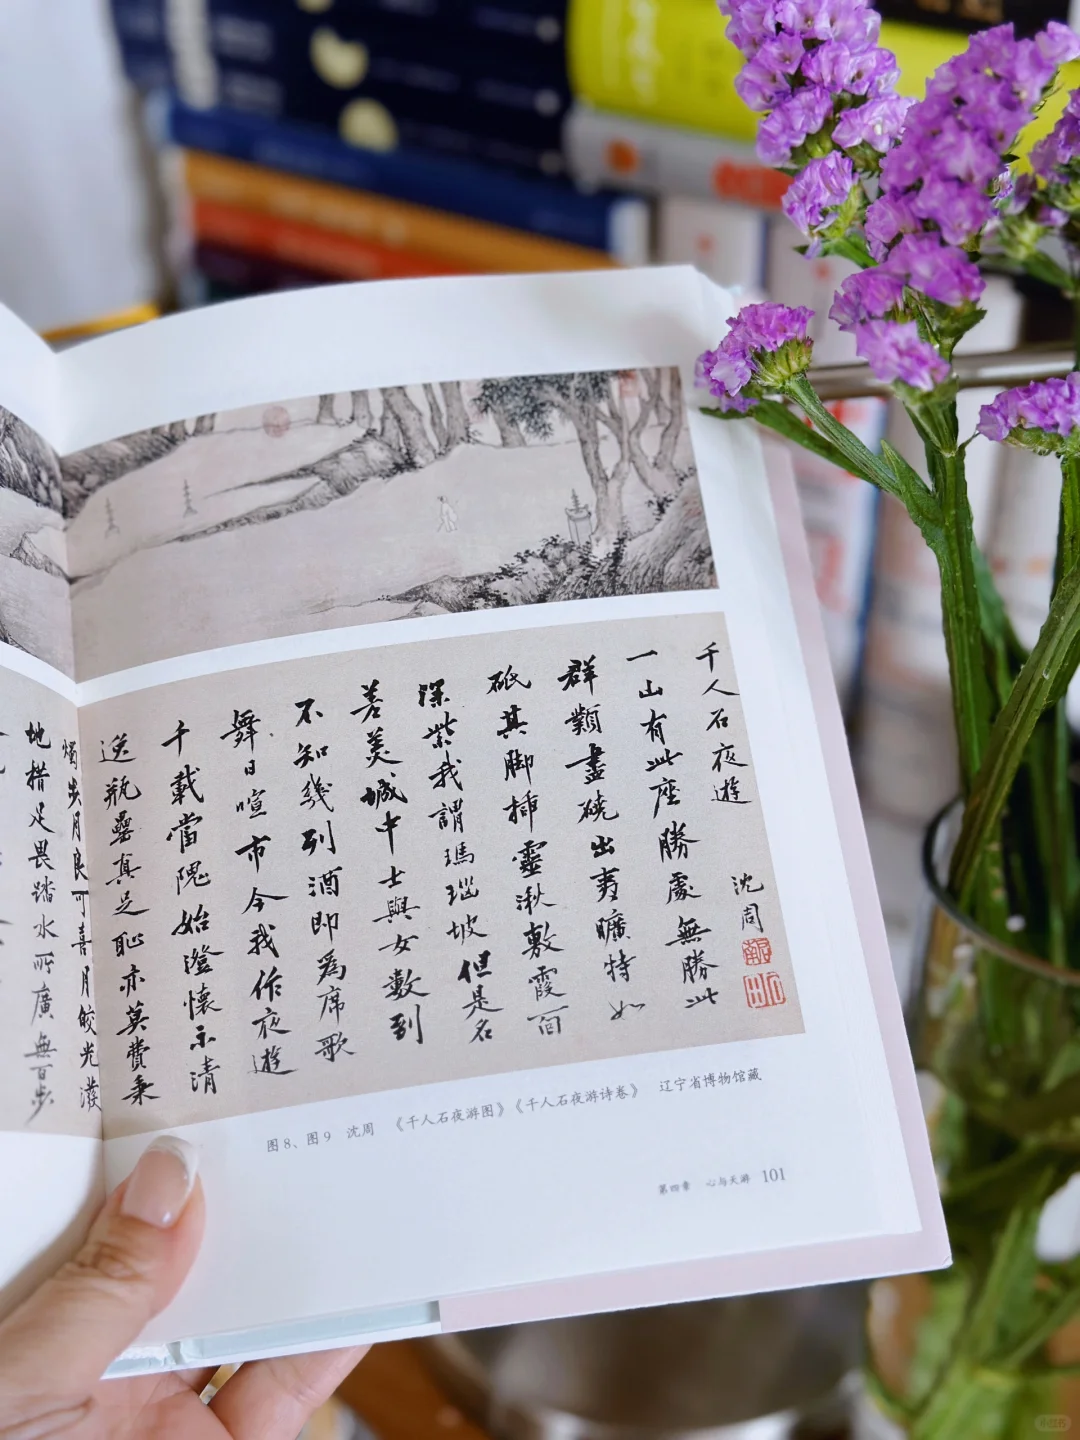 千人石夜遊
沈周
一山有此座勝處無勝此
群類盡磽出夷曠特如
砥其脚插靈湫敷霞面
深紫我謂瑪瑙坡但是名
差美城中士與女數到
不知幾列酒即為席歌
舞日喧市今我作夜遊
千載當隗始澄懷示清
逸瓶罍真足恥亦莫費秉
燭步月良可喜月皎光潑
地措足畏踏水所廣無百步
图8、图9 沈周 《千人石夜游图》《千人石夜游诗卷》 辽宁省博物馆藏
第四章 心与天游 101
小红书